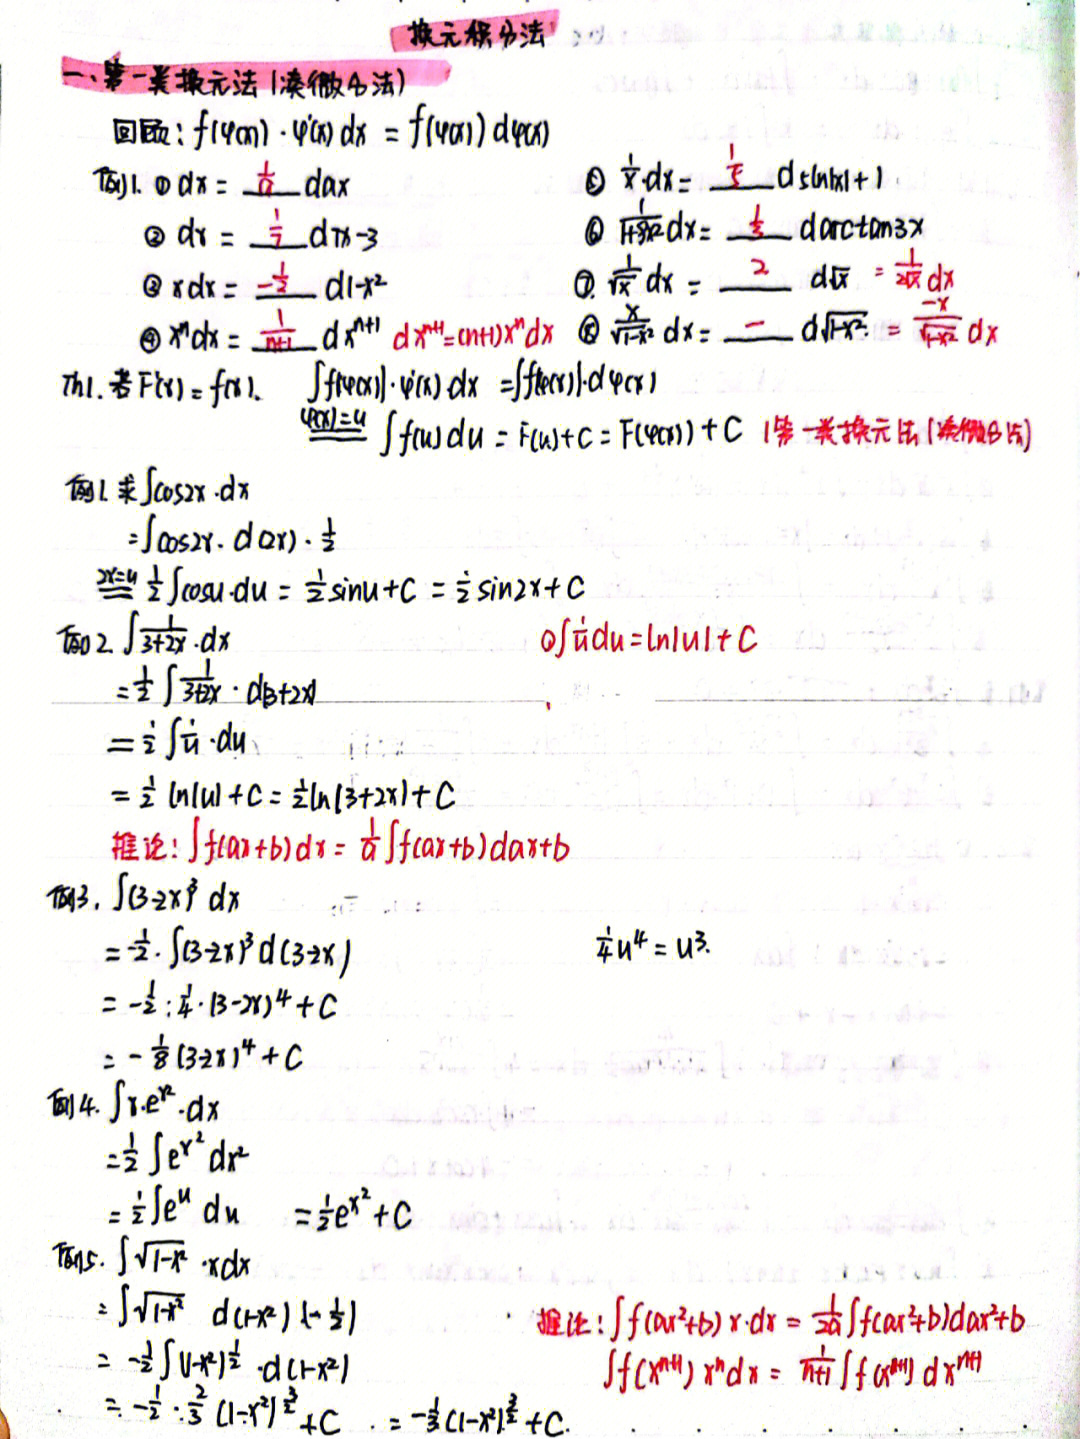 换元积分法
一、第一类换元法(凑微分法)
回顾: f(φ(x))·φ'(x)dx = f(φ(x))dφ(x)
例1. ① dx = 1/a dax
② dx = 1/7 d7x-3
③ xdx = -1/2 d1-x²
④ xⁿdx = 1/(n+1) dxⁿ⁺¹ dxⁿ⁺¹=(n+1)xⁿdx
⑤ 1/x·dx = 1/5 d5ln|x|+1
⑥ 1/(1+9x²) dx = 1/3 darctan3x
⑦. 1/√x dx = 2 d√x = 1/(2√x) dx
⑧ x/√(1-x²) dx = - d√(1-x²) = -x/√(1-x²) dx
Th1. 若F'(x)=f(x). ∫f[φ(x)]·φ'(x)dx = ∫f[φ(x)]·dφ(x)
φ(x)=u ∫f(u)du = F(u)+C = F(φ(x))+C (第一类换元法(凑微分法)
例1. 求∫cos2x·dx
=∫cos2x·d(2x)·1/2
2x=u 1/2∫cosu·du = 1/2sinu+C = 1/2sin2x+C
例2. ∫1/(3+2x)·dx ①∫1/u du=ln|u|+C
=1/2∫1/(3+2x)·d(3+2x)
=1/2∫1/u·du
=1/2 ln|u|+C=1/2ln|3+2x|+C
推论: ∫f(ax+b)dx = 1/a∫f(ax+b)dax+b
例3. ∫(3-2x)³dx
=-1/2·∫(3-2x)³d(3-2x) 1/4u⁴=u³.
=-1/2·1/4·(3-2x)⁴+C
=-1/8(3-2x)⁴+C
例4. ∫x·eˣ²·dx
=1/2∫eˣ²dx²
=1/2∫eᵘdu =1/2eˣ²+C
例5. ∫√(1-x²)·xdx
=∫√(1-x²) d(1-x²)(-1/2)
=-1/2∫(1-x²)^(1/2)·d(1-x²)
=-1/2·2/3(1-x²)^(3/2)+C =-1/3(1-x²)^(3/2)+C.
推论: ∫f(ax²+b)x·dx = 1/(2a)∫f(ax²+b)dax²+b
∫f(xⁿ⁺¹)xⁿdx = 1/(n+1)∫f(xⁿ⁺¹)dxⁿ⁺¹